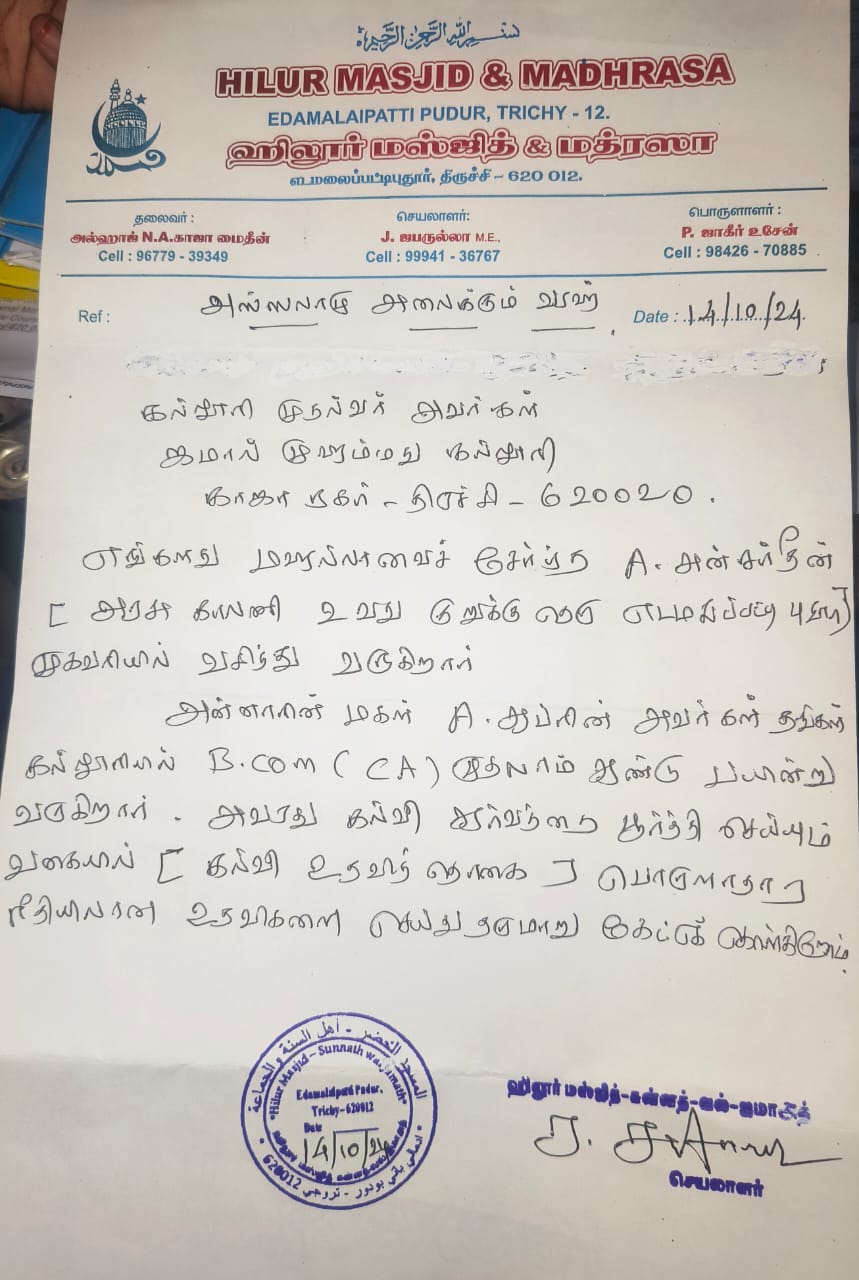 بسم الله الرحمن الرحيم
HILUR MASJID & MADHRASA
EDAMALAIPATTI PUDUR, TRICHY - 12.
ஹிலூர் மஸ்ஜித் & மத்ரஸா
எடமலைப்பட்டிபுதூர், திருச்சி – 620 012.
தலைவர் :
அல்ஹாஜ் N.A.காஜா மைதீன்
Cell : 96779 - 39349
செயலாளர்:
J. ஜபருல்லா M.E.,
Cell : 99941 - 36767
பொருளாளர் :
P. ஜாகீர் உசேன்
Cell : 98426 - 70885
Ref :
அஸ்ஸலாமு அலைக்கும் வரஹ்
Date : 14/10/24
கல்லூரி முதல்வர் அவர்கள்
ஜமால் முஹம்மது கல்லூரி
காஜா நகர் - திருச்சி - 620020.
எங்களது மஹல்லாவைச் சேர்ந்த A. அன்சர்தீன்
[ அரசு காலணி 2 வது குறுக்கு தெரு எடமலைப்பட்டி புதூர்]
முகவரியில் வசித்து வருகிறார்
அன்னாரின் மகள் A. ஆப்ரின் அவர்கள் தங்கள்
கல்லூரியில் B.COM ( CA ) முதலாம் ஆண்டு பயின்று
வருகிறார். அவரது கல்வி ஆர்வத்தை பூர்த்தி செய்யும்
வகையில் [ கல்வி உதவித் தொகை ] பொருளாதார
ரீதியிலான உதவிகளை செய்து தருமாறு கேட்டுக் கொள்கிறோம்.
المسجد الخضر - أهل السنة والجماعة
"Hilur Masjid - Sunnath wal Jamath"
Edamalaipatti Pudur,
Trichy-620012
Date
14/10/24
ஹிலூர் மஸ்ஜித்-சுன்னத்-வல்-ஜமாஅத்
செயலாளர்